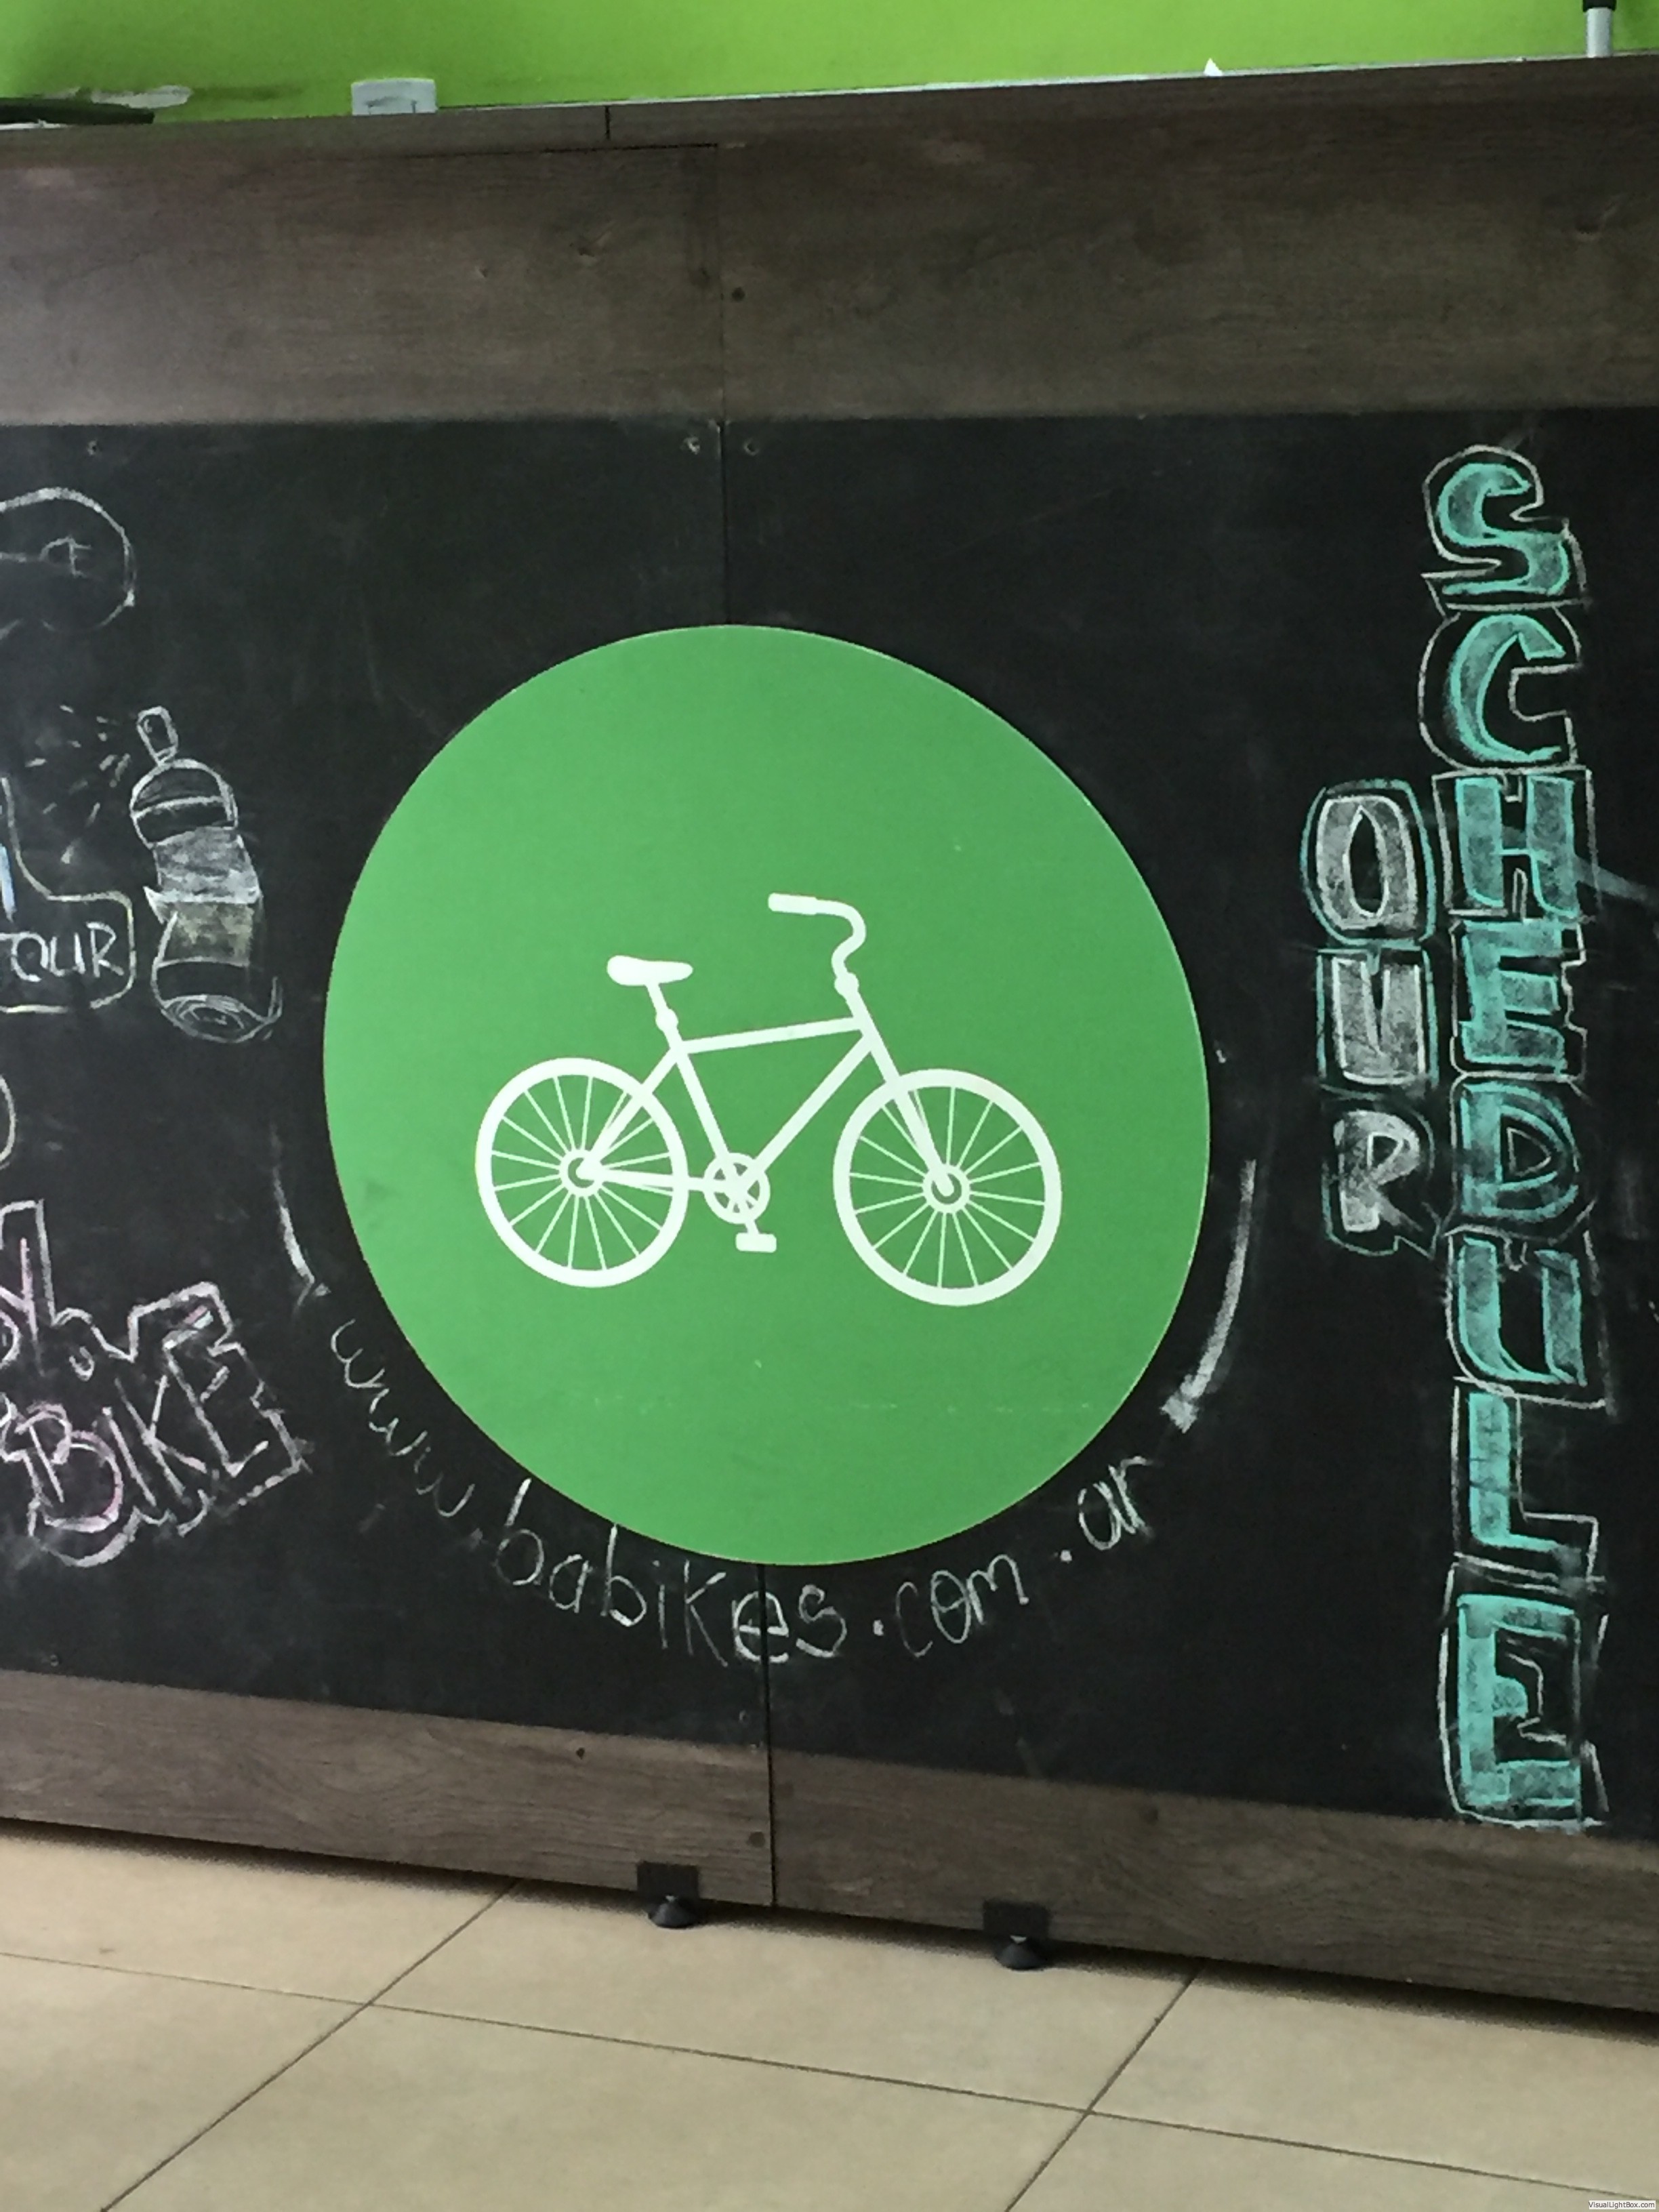 TOUR
BIKE
www.babikes.com.ar
OUR
SCHEDULE
VisualLightBox.com